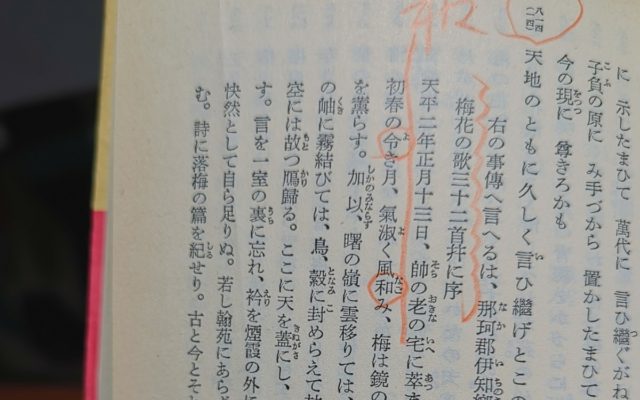 に 示したまひて 萬代に 言ひ繼ぐがね
子負の原に み手づから 置かしたまひて
今の現に 尊きろかも
八一四
(一四) 天地のともに久しく言ひ繼げとこの
右の事傳へ言へるは、那珂郡伊知郷
梅花の歌三十二首幷に序
天平二年正月十三日、帥の老の宅に萃
初春の令き月、氣淑く風和み、梅は鏡の
を薰らす。加以、曙の嶺に雲移りては、
の岫に霧結びては、鳥、縠に封めらえて
空には故つ鴈歸る。ここに天を蓋にし、
す。言を一室の裏に忘れ、衿を煙霞の外に
快然として自ら足りぬ。若し翰苑にあら
む。詩に落梅の篇を紀せり。古と今とそ